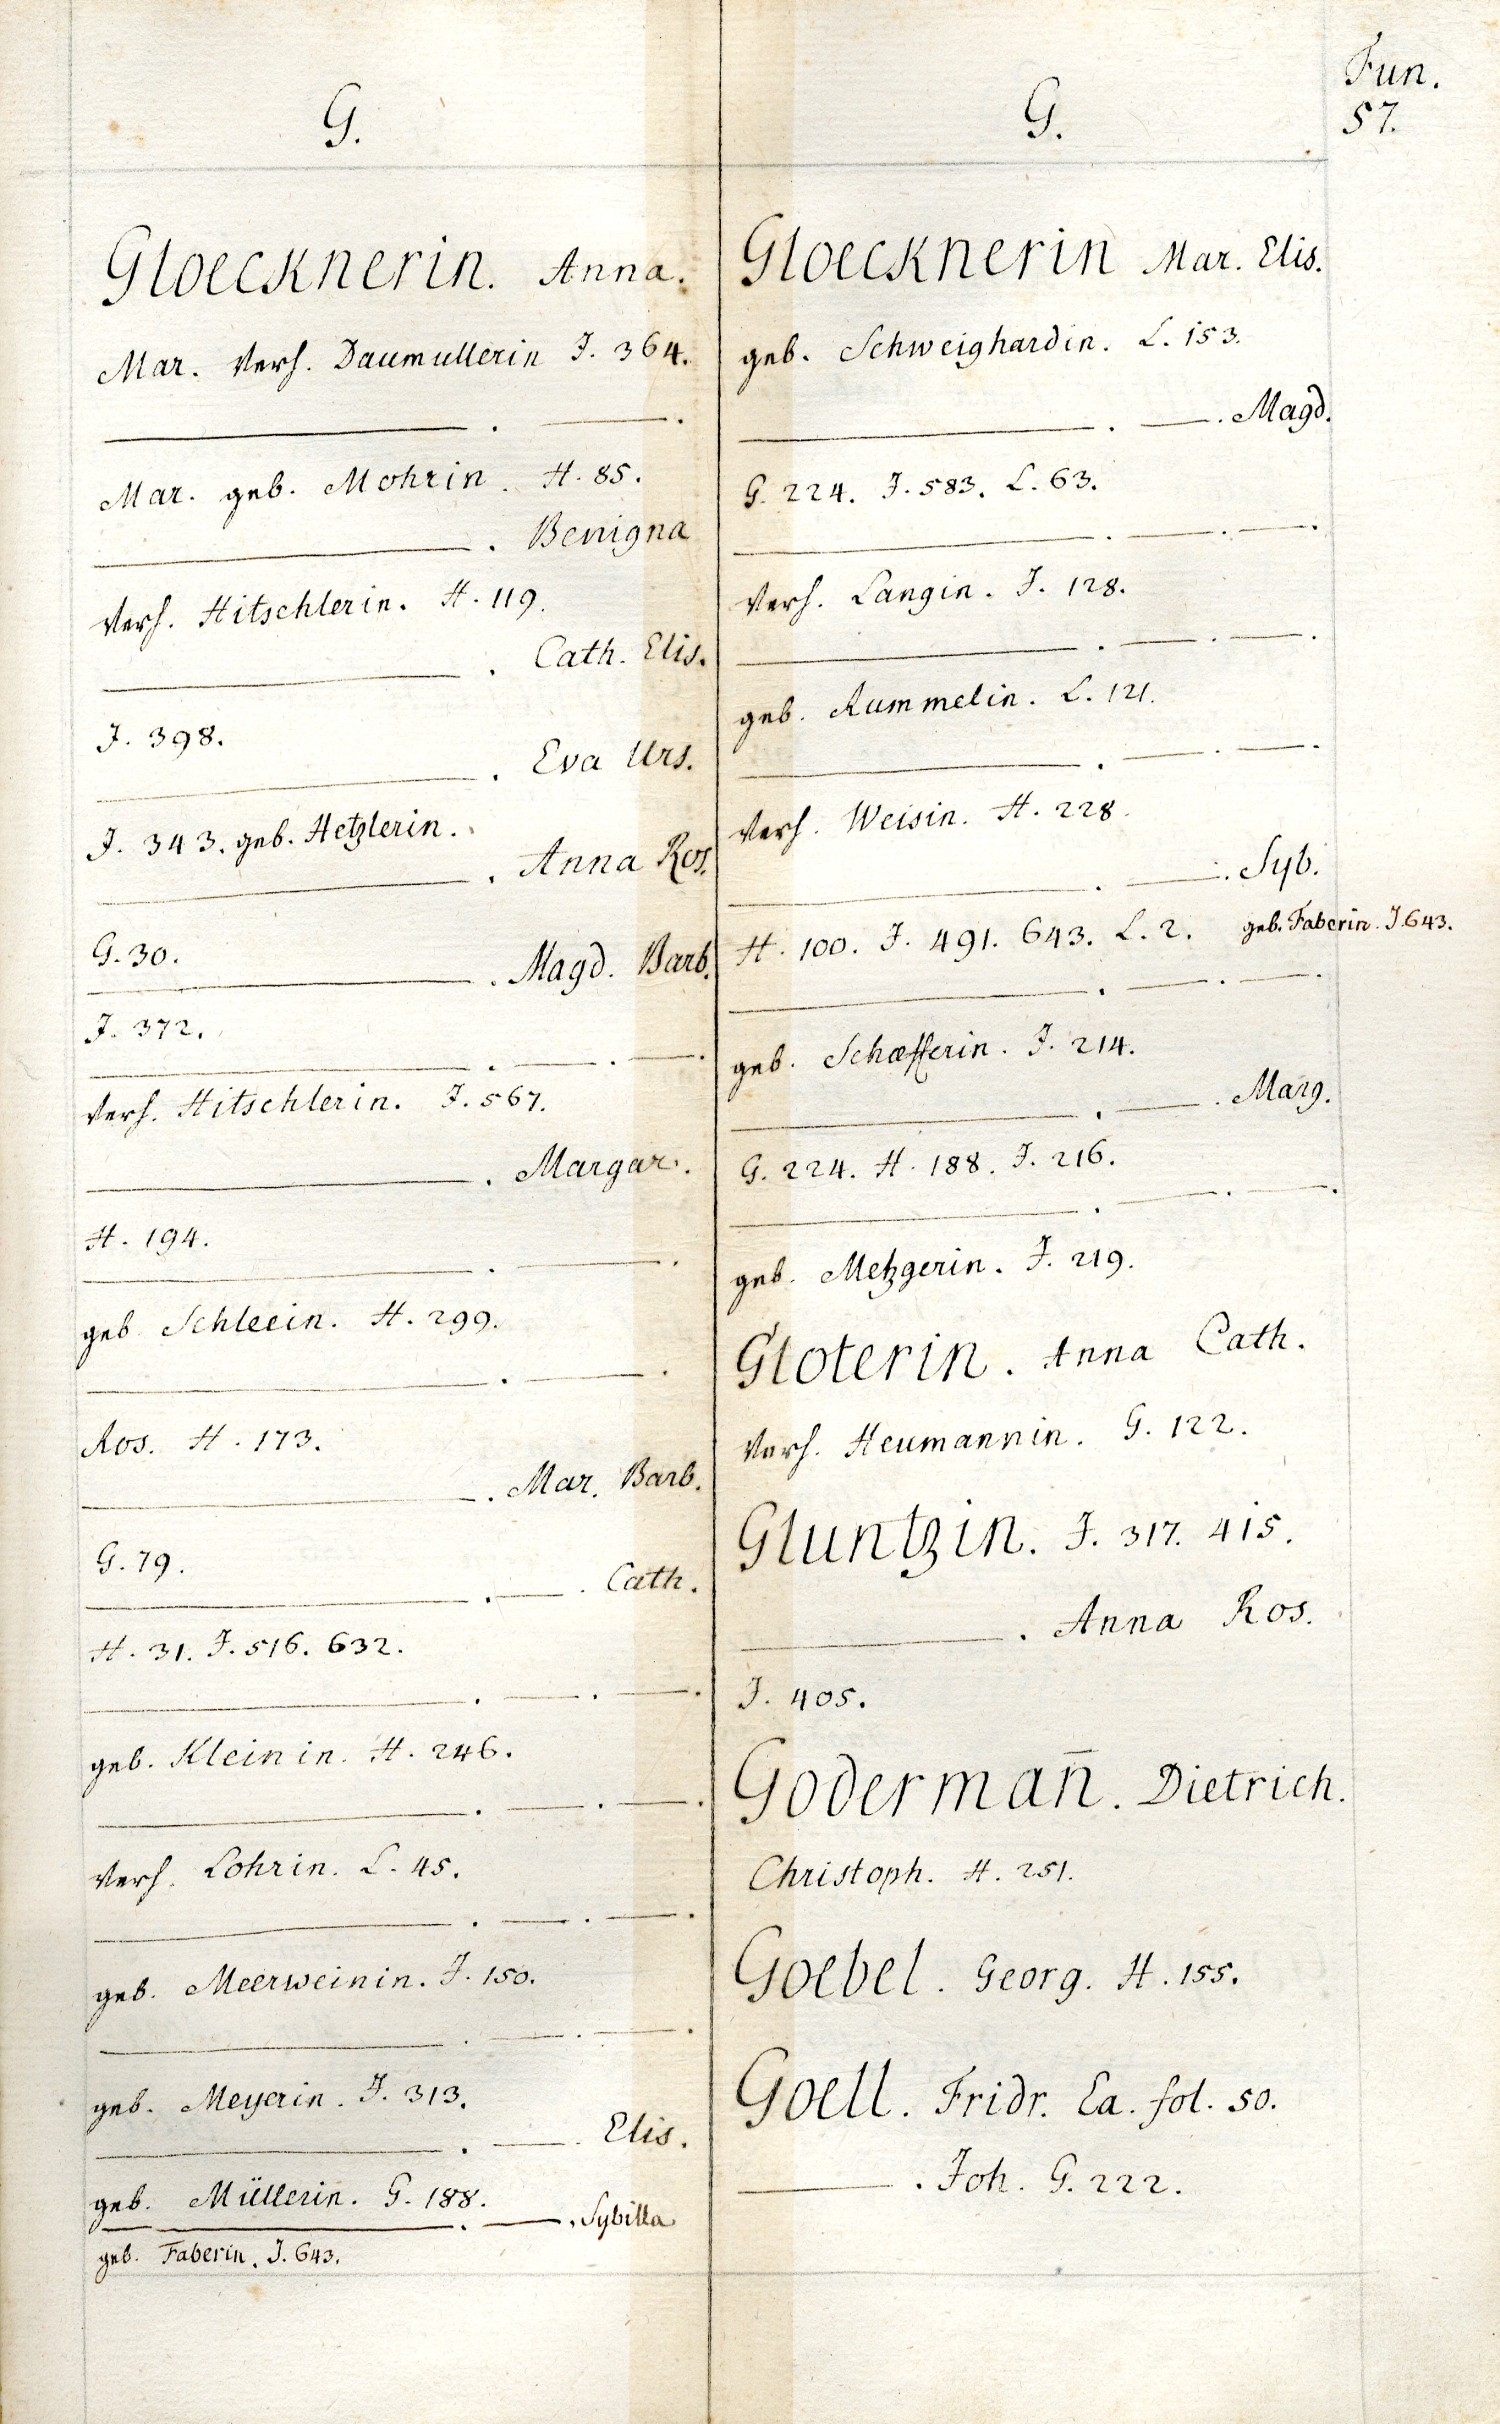 Fun.
57.
G.
Gloecknerin. Anna.
Mar. Verh. Daumullerin J. 364.
———. ———.
Mar. geb. Mohrin. H. 85.
———. Benigna
Verh. Hitschlerin. H. 119.
———. Cath. Elis.
J. 398.
———. Eva Urs.
J. 343. geb. Hetzlerin.
———. Anna Ros.
G. 30.
———. Magd. Barb.
J. 372.
———. ———. ———.
Verh. Hitschlerin. J. 567.
———. Margar.
H. 194.
———. ———.
geb. Schleein. H. 299.
———. ———.
Ros. H. 173.
———. Mar. Barb.
G. 79.
———. ———. Cath.
H. 31. J. 516. 632.
———. ———. ———.
geb. Kleinin. H. 246.
———. ———. ———.
Verh. Lohrin. L. 45.
———. ———. ———.
geb. Meerweinin. J. 150.
———. ———. ———.
geb. Meyerin. J. 313.
———. ———. Elis.
geb. Müllerin. G. 188.
———. ———. Sybilla
geb. Faberin. J. 643.
G.
Gloecknerin Mar. Elis.
geb. Schweighardin. L. 153.
———. ———. Magd.
G. 224. J. 583. L. 63.
———. ———. ———.
Verh. Langin. J. 128.
———. ———. ———.
geb. Rummelin. L. 121.
———. ———. ———.
Verh. Weisin. H. 228.
———. ———. Syb.
H. 100. J. 491. 643. L. 2. geb. Faberin. J. 643.
———. ———. ———.
geb. Schæfferin. J. 214.
———. ———. Marg.
G. 224. H. 188. J. 216.
———. ———. ———.
geb. Metzgerin. J. 219.
Gloterin. Anna Cath.
Verh. Heumannin. G. 122.
Gluntzin. J. 317. 415.
———. Anna Ros.
J. 405.
Goderman̄. Dietrich.
Christoph. H. 251.
Goebel. Georg. H. 155.
Goell. Fridr. Ea. fol. 50.
———. Joh. G. 222.